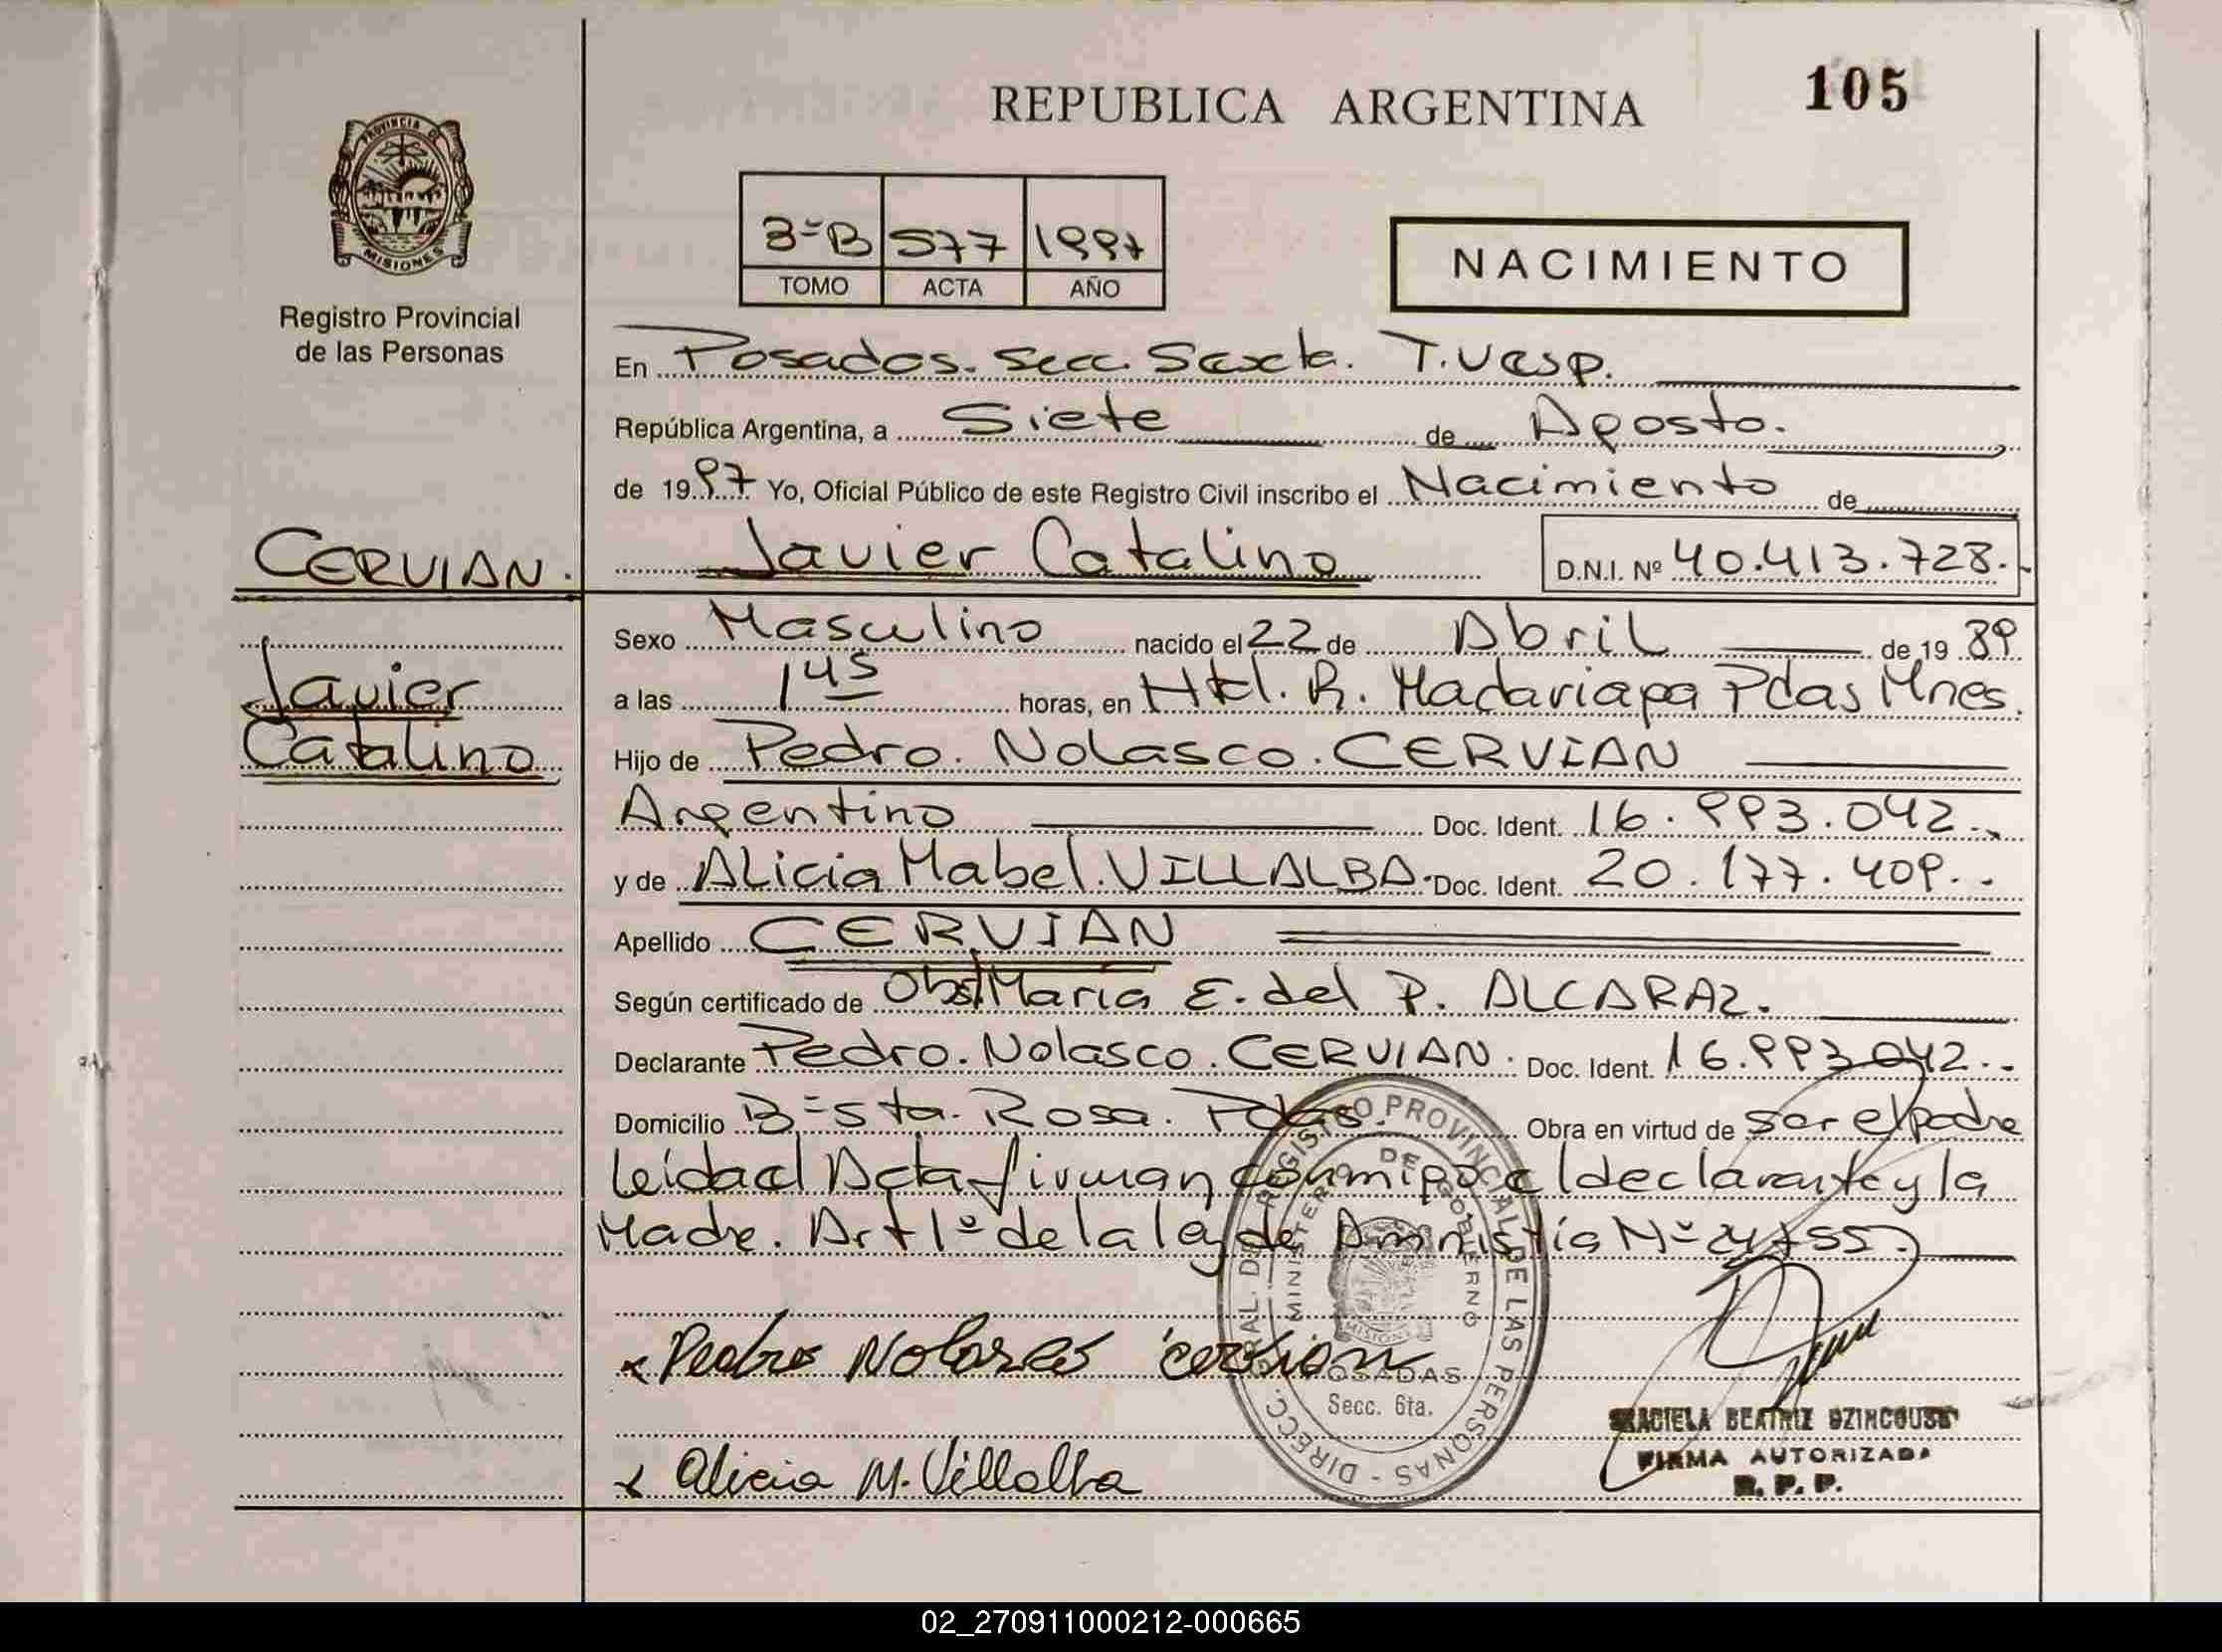 REPUBLICA ARGENTINA
105
PROVINCIA DE
MISIONES
Registro Provincial
de las Personas
3º B 577 1997
TOMO ACTA AÑO
NACIMIENTO
En Posadas. Secc. Sexta. T. Vesp.
República Argentina, a Siete de Agosto.
de 1997 Yo, Oficial Público de este Registro Civil inscribo el Nacimiento de
CERVIAN. Javier Catalino D.N.I. Nº 40.413.728.-
Sexo Masculino nacido el 22 de Abril de 1989
Javier
Catalino
a las 1 45 horas, en Htal. R. Madariaga Pdas Mnes.
Hijo de Pedro. Nolasco. CERVIAN
Argentino Doc. Ident. 16.993.042.-
y de Alicia Mabel. VILLALBA. Doc. Ident. 20.177.409.-
Apellido CERVIAN
Según certificado de Obst María E. del P. ALCARAZ.
Declarante Pedro. Nolasco. CERVIAN. Doc. Ident. 16.993.042.-
Domicilio Bº Sta. Rosa. Pdas. Obra en virtud de ser el padre
leída el Acta firman conmigo el declarante y la
Madre. Art 1º de la ley de Amnistía Nº 24755.
Pedro Nolasco cervian
Alicia M. Villalba
DIRECC. GRAL. DEL REGISTRO PROVINCIAL DE LAS PERSONAS -
MINISTERIO DE GOBIERNO
MISIONES
POSADAS
Secc. 6ta.
GRACIELA BEATRIZ
FIRMA AUTORIZADA
R. P. P.
02_270911000212-000665